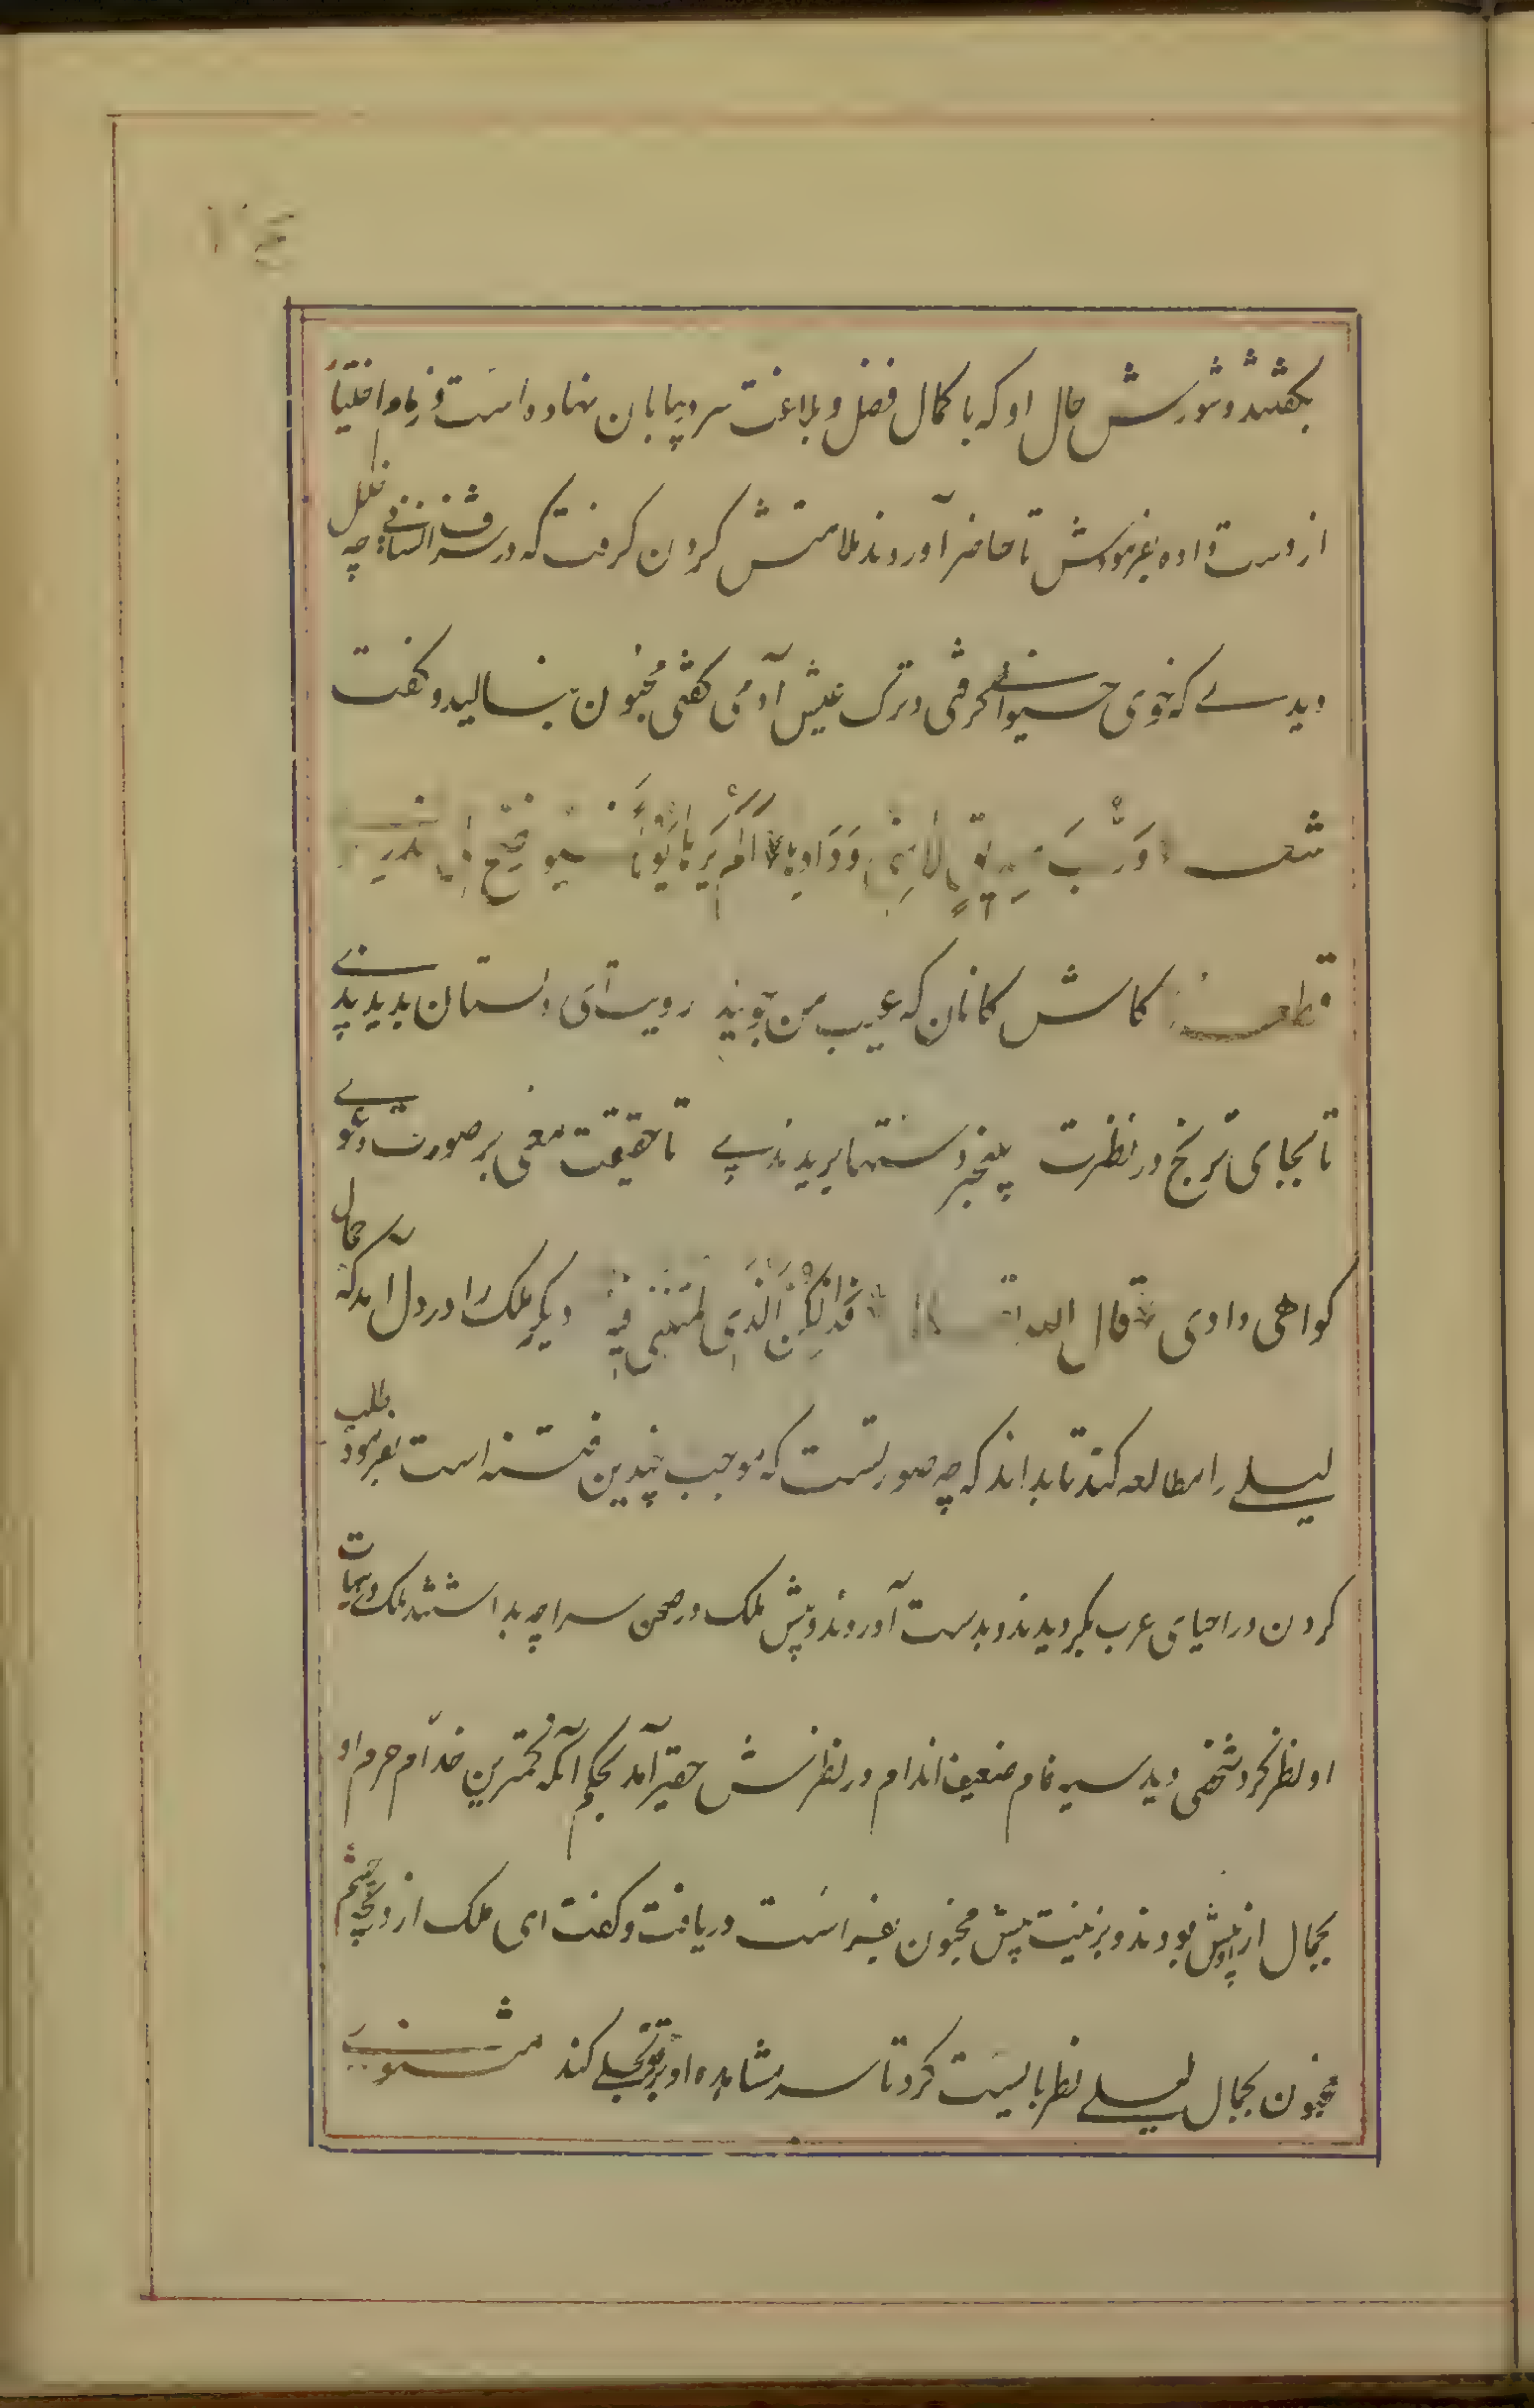 بگفتند و شورش حال او که با کمال فضل و بلاغت سر در بیابان نهاده است و زمام اختیار
از دست داده بفرمودش تا حاضر آوردند ملامتش کردن گرفت که در شرف انسانی چه خلل
دیدے که خوی حیوانے گرفتی و ترک عیش آدمی گفتی مجنون بنالید و گفت
شعر وَرُبَّ صدیقٍ لامنی وَدَادِها اَلَم یَرَها یَوماً فیوضح لی عذری
قطعه کاش کانان که عیب من جویند رویت ای دلستان بدیدندے
تا بجای ترنج در نظرت بیخبر دستها بریدندے تا حقیقت معنی بر صورت دعوے
گواهی دادی قال الله تعالی فَذٰلِکُنَّ الَّذِی لُمتُنَّنِی فِیهِ دیگر ملک را در دل آمد که جمال
لیلے را مطالعه کند تا بداند که چه صورتست که موجب چندین فتنه است بفرمود طلب
کردن در احیای عرب بگردیدند و بدست آوردند و پیش ملک در صحن سراچه بداشتند ملک در هیأت
او نظر کرد شخصی دید سیه فام ضعیف اندام در نظرش حقیر آمد بحکم آنکه کمترین خدّام حرم او
بجمال ازو پیش بودند و بزینت بیش مجنون بفراست دریافت و گفت ای ملک از دریچه چشم
مجنون بجمال لیلے نظر بایست کرد تا سر مشاهده او بر تو تجلے کند مثنوے